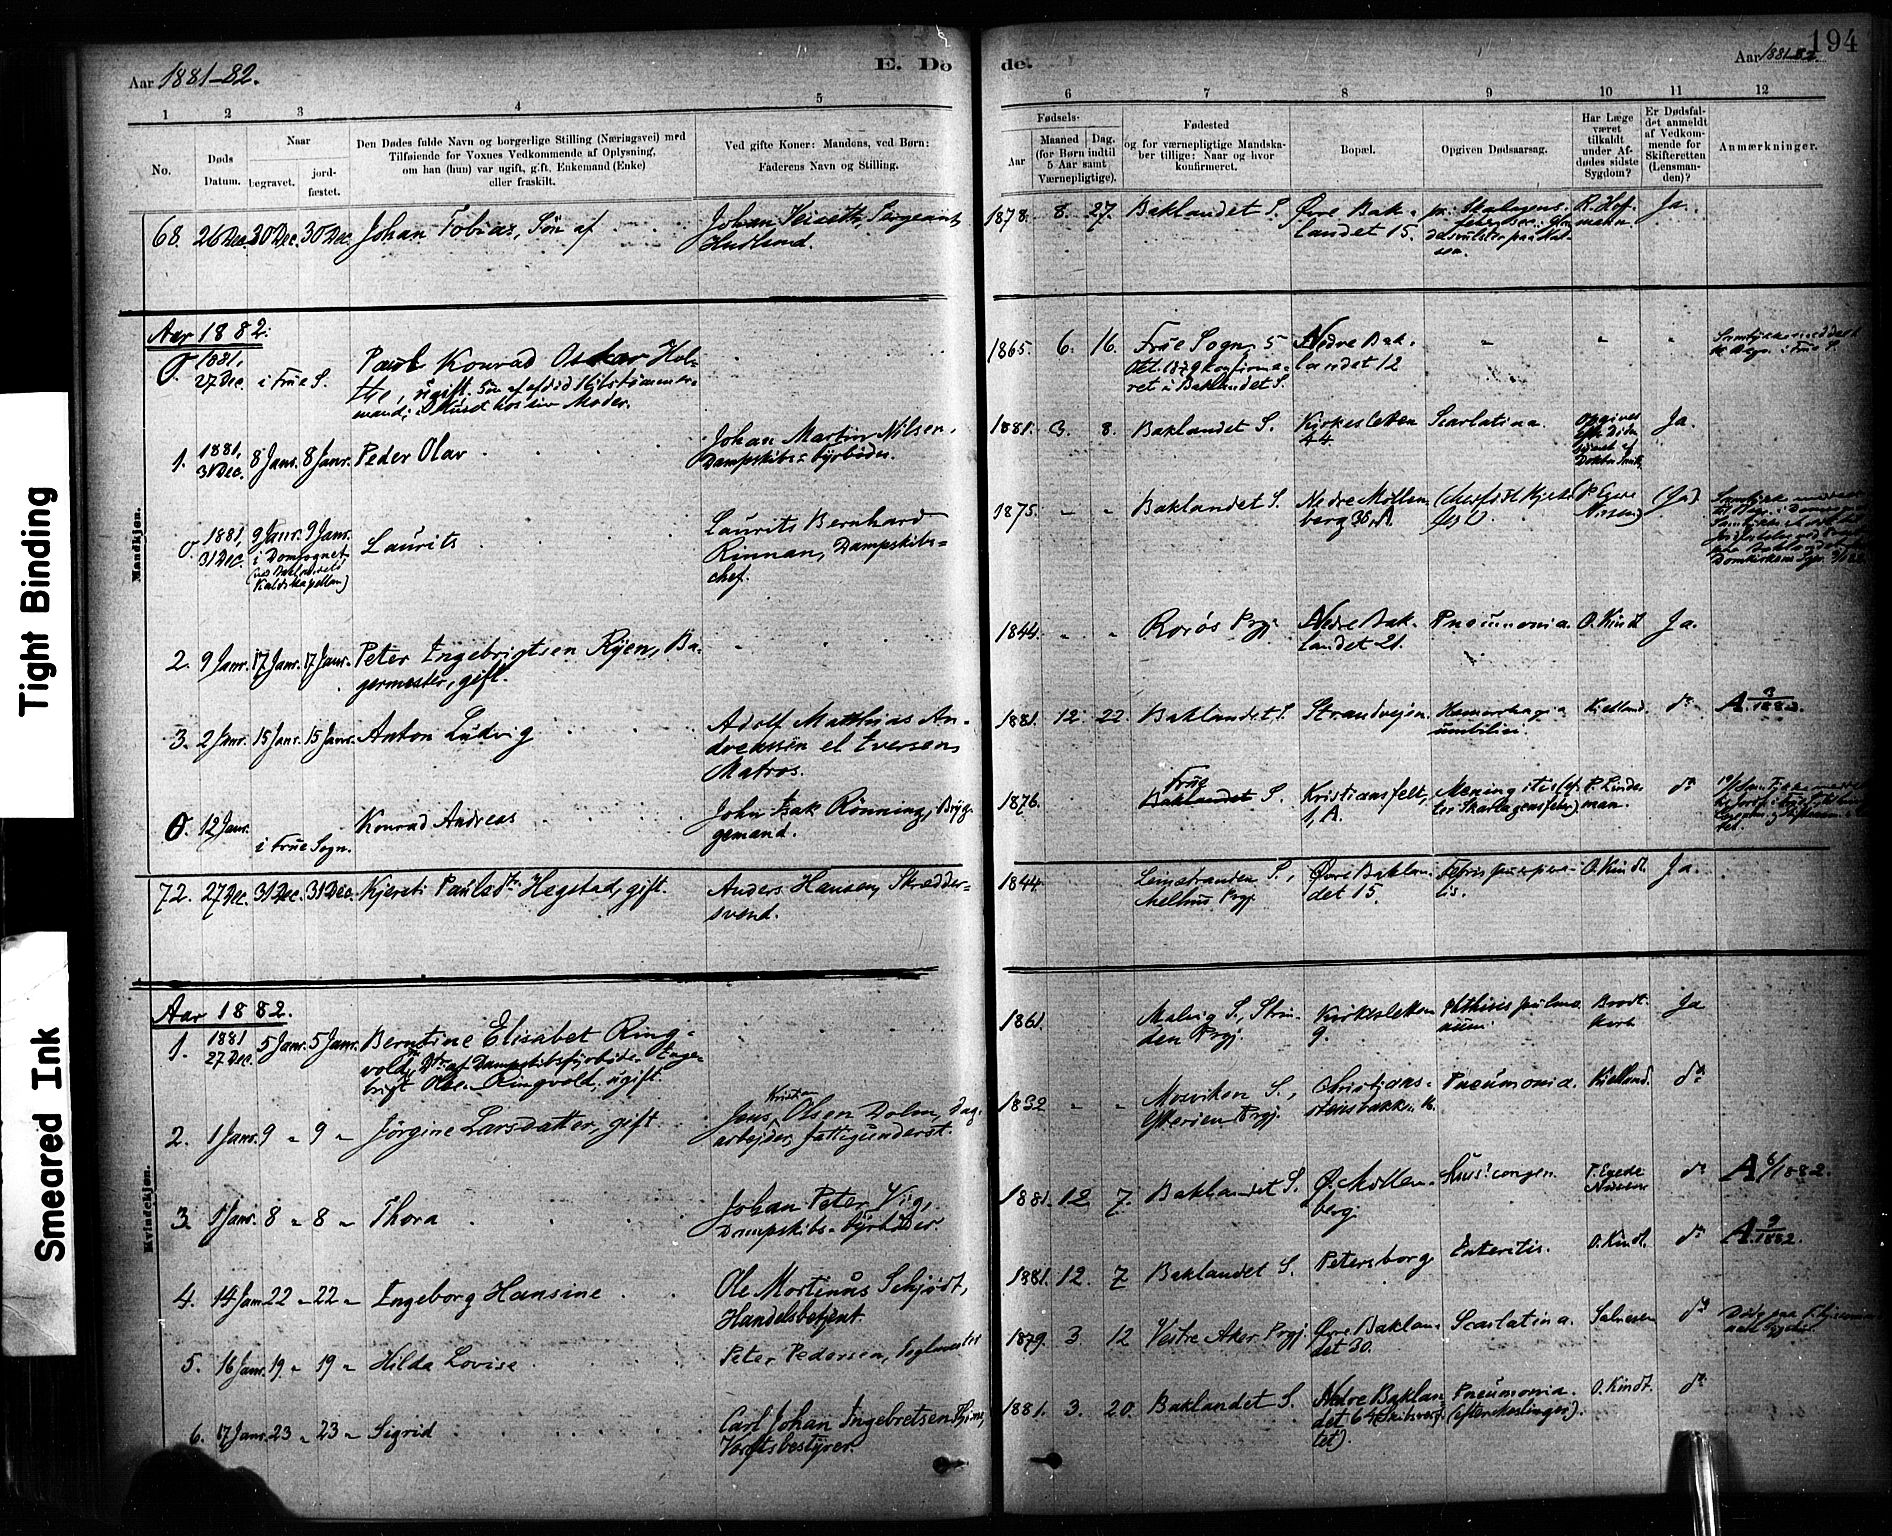 194
Aar 1881-82.
E. Dö
de.
Aar 1881-82.
1 2 3 4 5 6 7 8 9 10 11 12
No.
Døds Datum.
Naar
begravet.
jord-
fæstet.
Den Dødes fulde Navn og borgerlige Stilling (Næringsvei) med
Tilføiende for Voxnes Vedkommende af Oplysning,
om han (hun) var ugift, gift, Enkemand (Enke)
eller fraskilt.
Ved gifte Koner: Mandens, ved Børn:
Faderens Navn og Stilling.
Fødsels-
Aar
Maaned Dag.
(for Børn indtil
5 Aar samt
Værnepligtige).
Fødested
og for værnepligtige Mandska-
ber tillige: Naar og hvor
konfirmeret.
Bopæl.
Opgiven Dødsaarsag.
Har Læge
været
tilkaldt
under Af-
dødes sidste
Sygdom?
Er Dødsfal-
det anmeldt
af Vedkom-
mende for
Skifteretten
(Lensman-
den)?
Anmærkninger.
68. 26 Dec. 30 Dec. 30 Dec. Johan Tobias, Søn af
Johan Sergeant
1878. 8. 27. Baklandet S. Øvre Bak-
landet 15.
Ja.
Aar 1882.
Mandkjøn.
0. 1881, 27 Dec. i Frue S. Paul Konrad Oskar Hol-
the, ugift.
1865. 6. 16. Frue Sogn. 5
Okt. 1879 konfirme-
ret i Baklandet S.
Nedre Bak-
landet 12
1. 1881, 31 Dec. 8 Janr. 8 Janr. Peder Olav
Johan Martin Nilsen,
Dampskibs-fyrbøder.
1881. 3. 8. Baklandet S. Kirkesletten
44
Scarlatina. Ja.
0. 1881 31 Dec. 9 Janr. 9 Janr.
i Domsognet
Laurits
Laurits Bernhard
Rinnan, Dampskibs-
chef.
1875. Baklandet S. Nedre Møllen-
berg 36, A. (Ja)
2. 9 Janr. 17 Janr. 17 Janr. Peter Engebrigtsen Ryen, Ba-
germester, gift.
1844. Rorøs Prgj. Nedre Bak-
landet 21.
Pneumonia. O. Kindt Ja.
3. 2 Janr. 15 Janr. 15 Janr. Anton Ludvig
Adolf Matthias An-
dreassen el Iversen,
Matros.
1881. 12. 22. Baklandet S. Strandveien. Hemorrhagia
umbilici.
Kielland. do A 3/1882.
0. 12 Janr. i Frue Sogn. Konrad Andreas
John Isak Rønning, Bryg-
gemand.
1876. Frue
Baklandet S. Kristiansfelt,
1, A.
Meningitis (ef-
ter Skarlagensfeber).
P. Linde-
man. do
72. 27 Dec. 31 Dec. 31 Dec. Kjersti Paulsdtr Hegstad, gift.
Anders Hansen, Skrædder-
svend.
1844. Leinstranden S.,
Melhus Prgj.
Øvre Baklan-
det 15.
Febris puerpera-
lis.
O. Kindt. Ja.
Aar 1882.
Kvindekjøn.
1. 1881 27 Dec. 5 Janr. 5 Janr. Berntine Elisabet Ring-
vold, Dtr af Dampskibsfyrbøder Enge-
brigt Olsen Ringvold, ugift.
1861. Malvig S., Strin-
den Prgj.
Kirkesletten
9.
Phthisis pulmo-
num. Ja
2. 1 Janr. 9 „ 9 „ Jörgine Larsdatter, gift.
Jens Kristian Olsen Dolm, Dag-
arbejder, fattigunderst.
1832 „ „ Mosviken S.,
Ytterøen Prgj.
Christians-
stensbakken 16.
Pneumonia. Kielland. do
3. 1 Janr. 8 „ 8 „ Thora
Johan Peter Vig,
Dampskibs-fyrbøder
1881. 12 7. Baklandet S. Ø. Møllen-
berg.
P. Egede
Nissen do A 6/1882.
4. 14 Janr. 22 „ 22 „ Ingeborg Hansine
Ole Mortinus Schjødt,
Handelsbetjent.
1881. 12. 7 Baklandet S. Petersborg Enteritis. O. Kindt. do A 9/1882.
5. 16 Janr. 19 „ 19 „ Hilda Lovise
Peter Pedersen,
1879. 3 12 Vestre Aker Prgj. Øvre Baklan-
det 30.
Scarlatina. do
6. 17 Janr. 23 „ 23 „ Sigrid
Carl Johan Ingebretsen
1881. 3. 20. Baklandet S. Nedre Baklan-
det 64
Pneumonia.
(efter Meslinger).
O. Kindt. do
Tight Binding
Smeared Ink